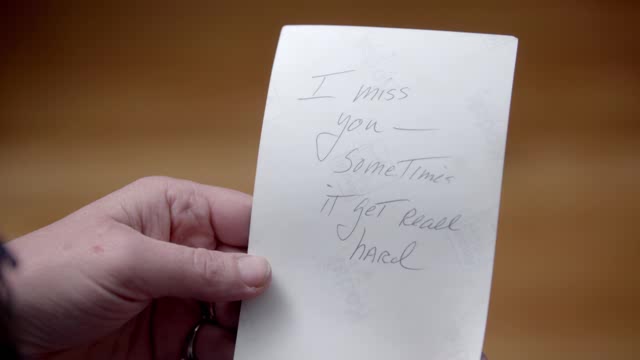 I miss
you —
sometimes
it get reall
hard